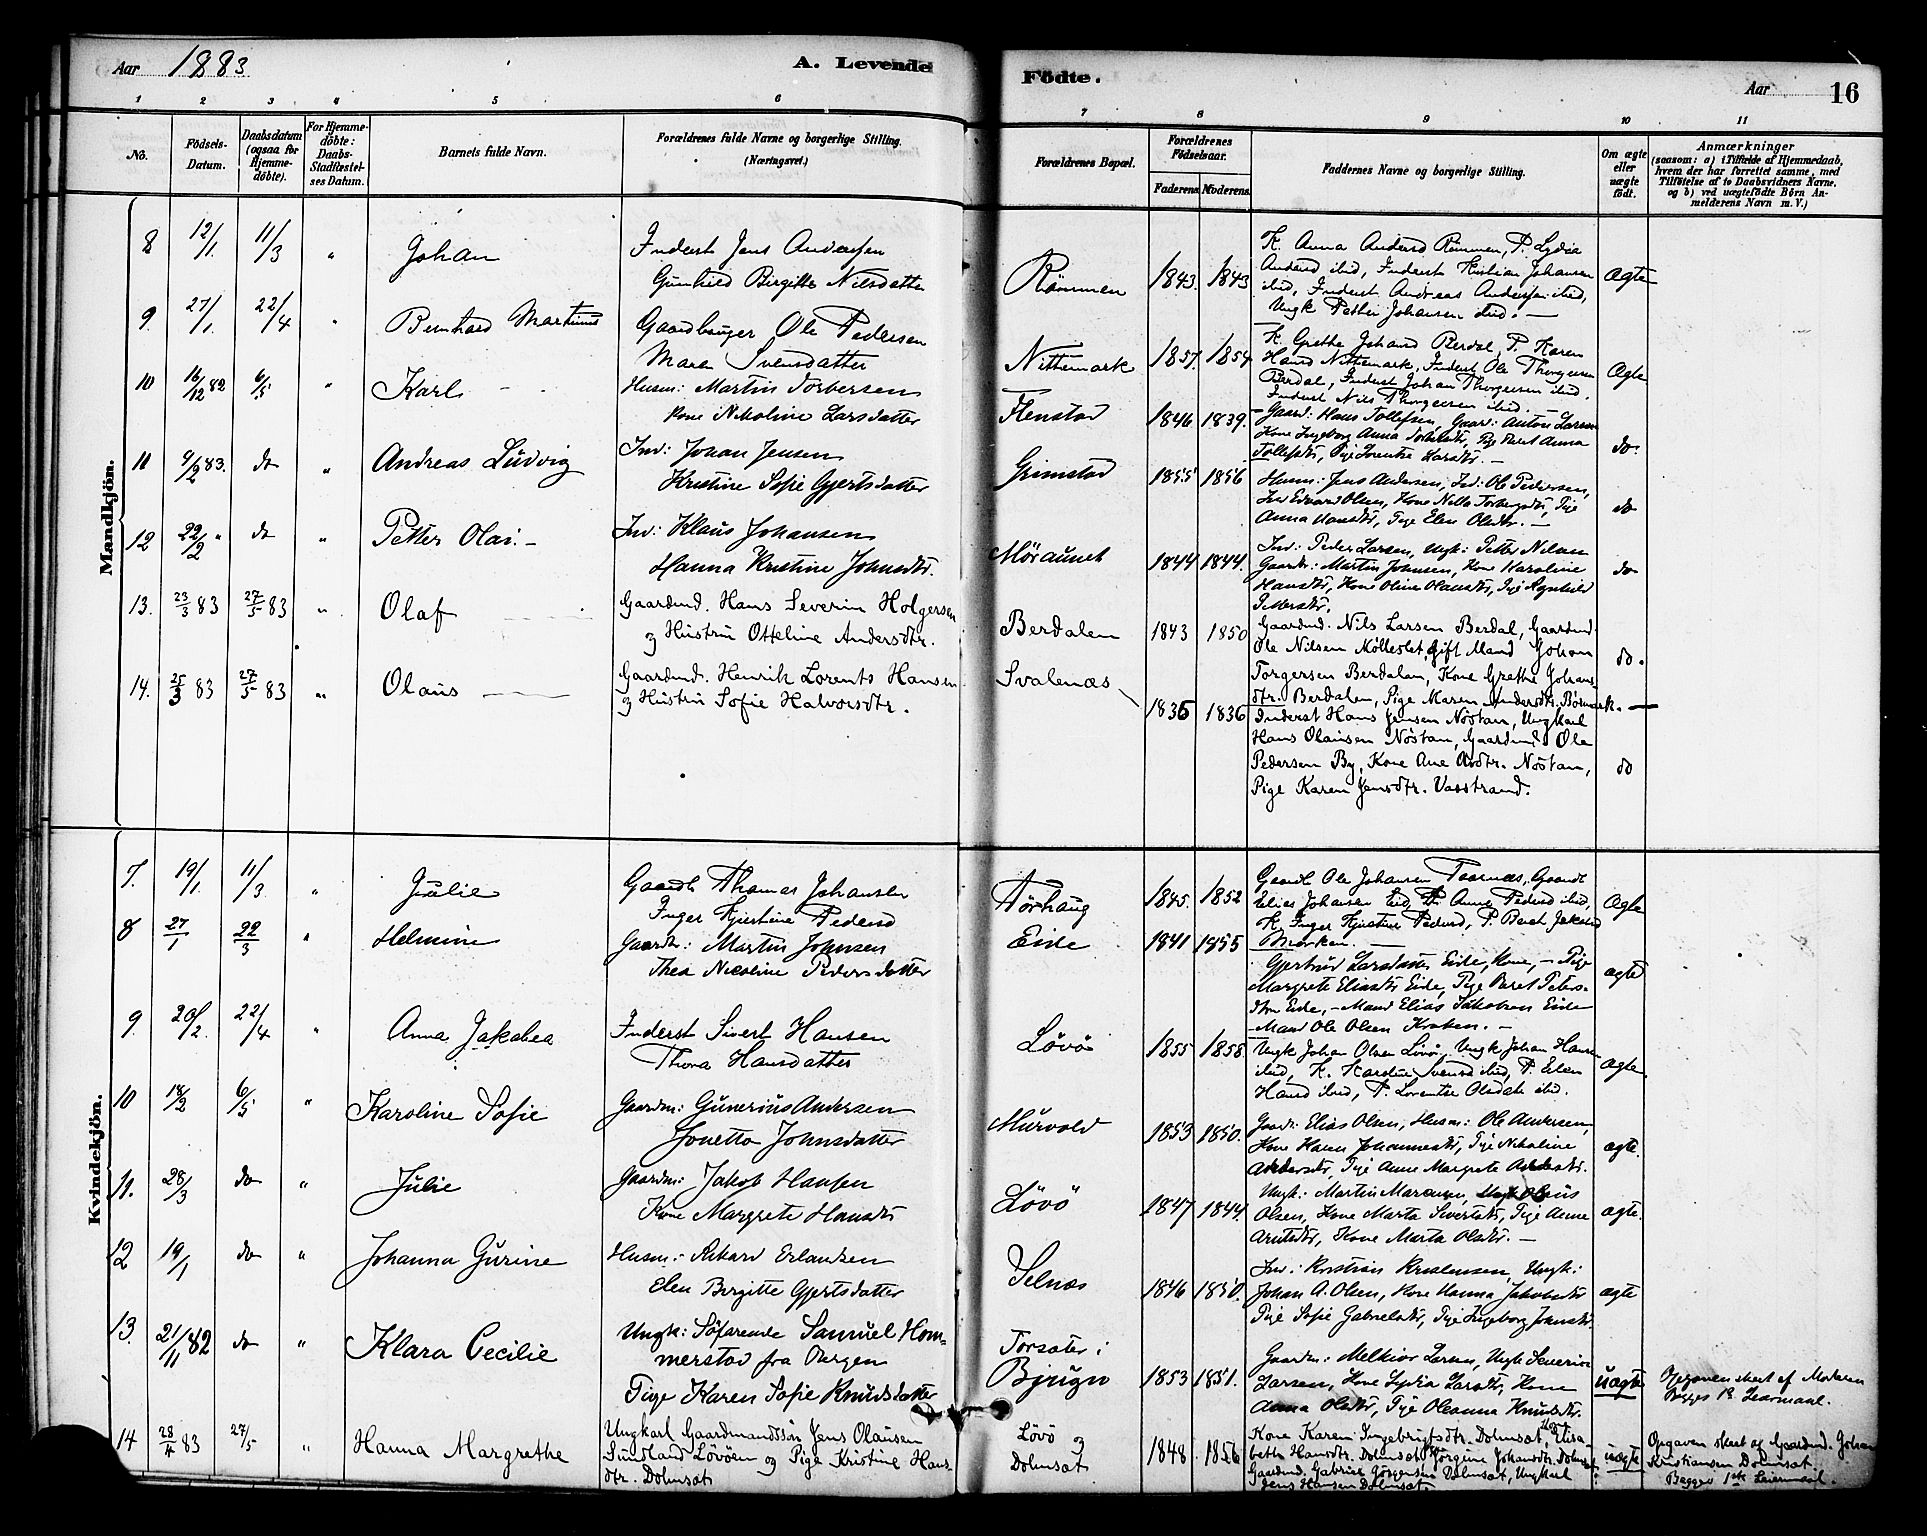 Aar 1883
A. Levende
Födte.
Aar
16
1 2 3 4 5 6 7 8 9 10 11
No.
Födsels-Datum.
Daabsdatum (ogsaa for Hjemme-döbte).
For Hjemme-döbte: Daabs-Stadfæstel-ses Datum.
Barnets fulde Navn.
Forældrenes fulde Navne og borgerlige Stilling. (Næringsvei.)
Forældrenes Bopæl.
Forældrenes Födselsaar.
Faderens. Moderens.
Faddernes Navne og borgerlige Stilling.
Om ægte eller uægte födt.
Anmærkninger
(saasom: a) i Tilfælde af Hjemmedaab, hvem der har forrettet samme, med Tilföielse af to Daabsvidners Navne, og b) ved uægtefödte Börn An-melderens Navn m. V.)
Mandkjön.
8 12/1. 11/3 " Johan
Inderst Jens Anderssen
Gunhild Birgitte Nilsdatter
Römmen 1843. 1843
K. Anna Andersd Römmen, P. Lydia
Andersd ibid, Inderst Kristian Johansen
ibid, Inderst Andreas Anderssen ibid,
Ungk Petter Johansen ibid. —
Ægte
9. 27/1. 22/4 " Bernhard Martinus
Gaardbruger Ole Pedersen
Maren Svensdatter
Nittemark 1857. 1854
K. Grethe Johansd Berdal, P. Karen
Hansd Nittemark, Inderst Ole Thorgersen
Berdal, Inderst Johan Thorgersen ibid,
Inderst Nils Thorgersen ibid. —
Ægte
10 16/12 82 6/5 " Karl
Husm: Martin Torbersen
Kone Nikoline Larsdatter
Flenstad 1846 1839.
Gaard: Hans Tollefsen, Gaar: Anton Larsen
Kone Ingeborg Anna Torbersdtr, Pig Beret Anna
Tollefsdtr, Pige Lorentse Larsdtr. —
do.
11 4/2 83. do " Andreas Ludvig
Ind: Johan Jensen
Kristine Sofie Gjertsdatter
Grimstad 1855 1856
Husm: Jens Andersen, Ind: Ole Pedersen,
Ind Edvard Olsen, Kone Nella Torbersdtr, Pige
Anna Hansdtr, Pige Elen Olsdtr. —
do
12 22/2 " do " Petter Olai. —
Ind: Klaus Johansen
Hanna Kristine Johnsdtr.
Möraunet 1844 1844.
Ind: Peder Larsen, Ungk: Petter Nilsen
Gaardm: Martin Johnsen, Kone Karoline
Hansdtr, Kone Oline Olausdtr, Pige Ragnhild
Pettersdtr.
do
13. 23/3 83 27/5 83 " Olaf
Gaardmd. Hans Severin Holgersen
og Hustru Otteline Andersdtr.
Berdalen 1843 1850
Gaardmd. Nils Larsen Berdal, Gaardmd.
Ole Nilsen Kölleslet, Gift Mand Johan
Torgersen Berdalen, Kone Grethe Johans-
dtr. Berdalen, Pige Maren Andersdtr. Börmark. —
do.
14. 25/3 83 27/5 83 " Olaus
Gaardmd. Henrik Lorents Hansen
og Hustru Sofie Halvorsdtr.
Svalenæs 1836 1836
Inderst Hans Jensen Nöstan, Ungkarl
Hans Olausen Nöstan, Gaardmd. Ole
Pedersen By, Kone Ane Ardtr. Nöstan,
Pige Karen Jensdtr. Vasstrand.
do
Kvindekjön.
7. 19/1. 11/3 " Julie
Gaardb Thomas Johansen
Inger Kjerstine Pedersd
Törhaug 1845. 1852
Gaardb Ole Johansen Taarnæs, Gaardb
Elias Johansen Eid, P. Anne Pedersd ibid,
K. Inger Kjerstine Pedersd,
Ægte
8 27/1 22/3 " Helmine
Gaardb: Martin Johnsen
Thea Nicoline Pedersdatter
Eide 1841 1855
Gjertrud Larsdatter Eide, Kone, — Pige
Margrete Eliasdtr Eide, Pige Beret Peters-
dtr Eide, — Mand Elias Jakobsen Eide
— Mand Ole Olsen Kroken. —
ægte
9. 20/2. 22/4 " Anna Jakobea
Inderst Sivert Hansen
Thora Hansdatter
Lövö 1855 1858.
Ungk Johan Olsen Lövö, Ungk Johan Hansen
ibid, K. Karstine Svensd ibid, P. Elen
Hansd ibid, P. Lorentse Olsdatr ibid.
ægte.
10 18/2 6/5 " Karoline Sofie
Gaardm: Gunerius Andersen
Jonetta Johnsdatter
Murvold 1853 1850.
Gaardr: Elias Olsen, Husm: Ole Andersen,
Kone Hanna Johannesdtr, Pige Nikoline
Andersdtr, Pige Anne Margrete Andersdtr.
ægte.
11. 28/3 do " Julie
Gaardm: Jakob Hansen
Kone Margrete Hansdtr
Lövö 1847 1844.
Ungk: Martin Marensen, Ungk Olaus
Olsen, Kone Marta Sivertsdtr, Pige Anne
Arntsdtr, Kone Marta Olsdtr. —
ægte.
12 19/1 do " Johanna Gurine
Husm: Rikard Erlandsen
Elen Birgitte Gjertsdatter
Selnæs 1846 1850.
Ind: Kristian Kristensen, Ungk:
Johan A. Olsen, Kone Hanna Jakobsdtr
Pige Sofie Gabrielsdtr, Pige Ingeborg Johnsdtr.
ægte
13. 21/11 82 do " Klara Cecilie
Ungk: Söfarende Samuel Hom-
merstad fra Bergen
Pige Karen Sofie Knudsdatter
Torsæter i
Bjugn 1853 1851.
Gaardm: Melkior Larsen, Ungk Severin
Larsen, Kone Lydia Larsdtr, Kone
Anna Olsdtr, Pige Oleanna Knudsdtr.
uægte
Opgaven skeet af Moderen
Begges 1ste Leiermaal.
14 28/4 83 27/5 " Hanna Margrethe
Ungkarl Gaardmandssön Jens Olausen
Sundland Lövöen og Pige Kristine Hans-
dtr. Dolmsæt
Lövö og
Dolmsæt 1848 1856
Kone Karen Ingebrigtsdtr. Dolmsæt, Kone Elisa-
beth Hansdtr. Dolmsæt, Pige Jörgine Johansdtr. Dolmsæt
Gaardmd. Gabriel Jörgensen Dolmsæt, Ungkarl
Jens Hansen Dolmsæt
uægte
Opgaven skeet af Gaardmd. Johan
Kristiansen Dolmsæt.
Begges 1ste Leiermaal.